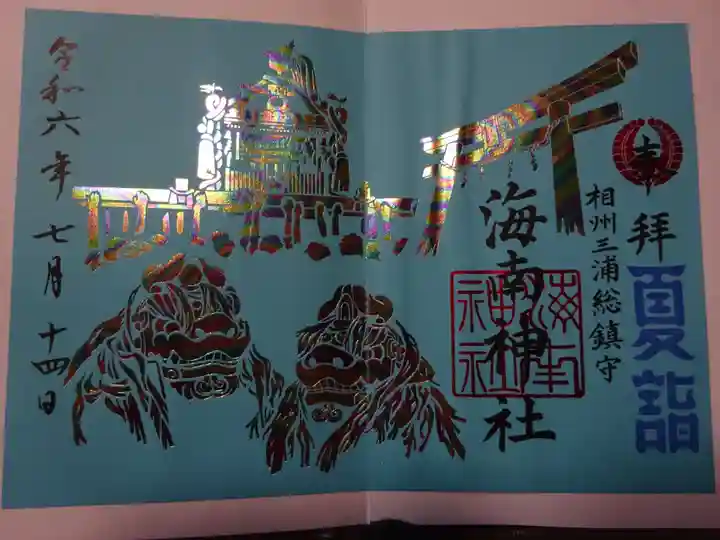 奉
拝
夏詣
相州三浦総鎮守
海南神社
令和六年七月十四日